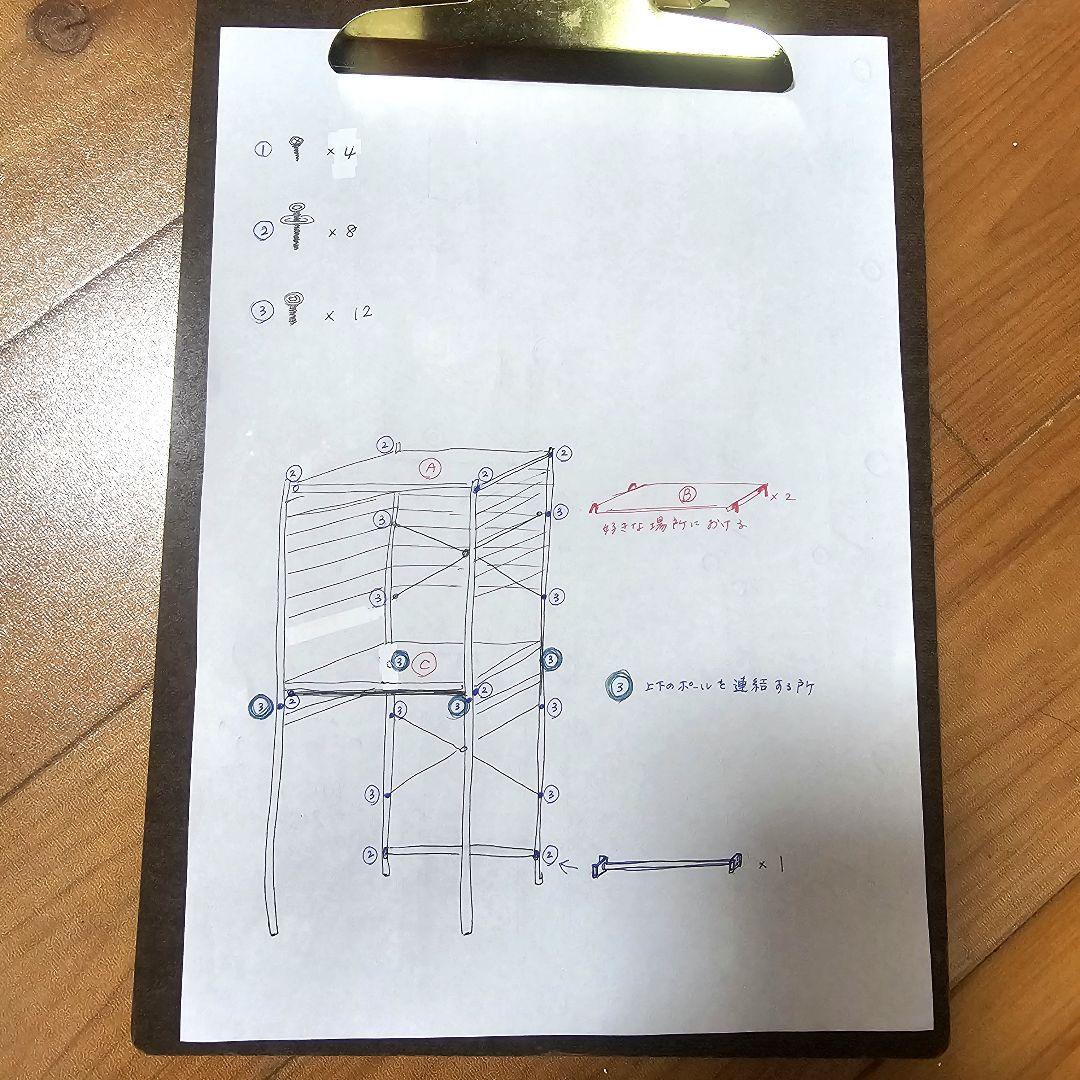 ① × 4
② × 8
③ × 12
② ② ② ②
Ⓐ
Ⓑ × 2
好きな場所における
③ ③
③ ③
③ Ⓒ ③
③ 上下のポールを連結する所
③ ② ③ ② ③ ③
③ ③
② ② ← × 1